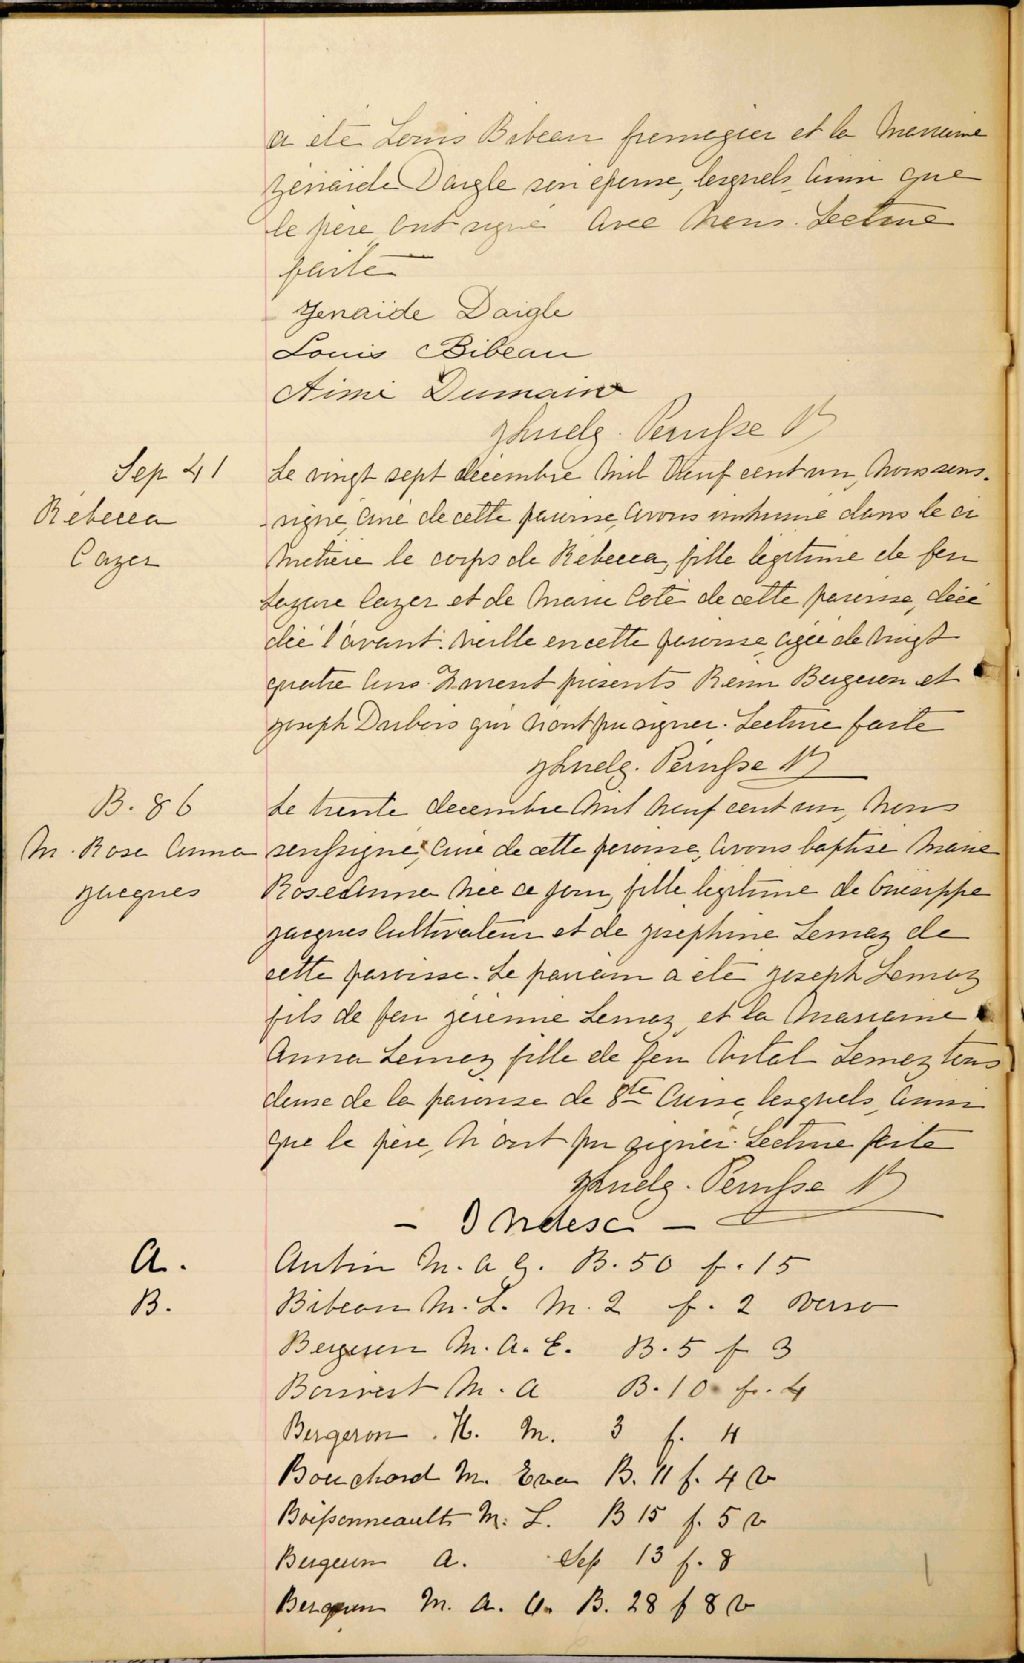 a été Louis Bibeau fromagier et la Marraine
Zénaïde Daigle son épouse, lesquels ainsi que
le père ont signé avec Nous. Lecture
faite
Zenaïde Daigle
Louis Bibeau
Aimé Dumaine
Pérusse
Sep 41
Rébecca
Cazer
Le vingt sept décembre mil neuf cent un, Nous sous-
signé, curé de cette paroisse, avons inhumé dans le ci
metière le corps de Rébecca, fille légitime de feu
Lazare Cazer et de Marie Coté de cette paroisse, décé
dée l'avant-veille en cette paroisse, agée de vingt
quatre ans. Furent présents Rémi Bergeron et
Joseph Dubois qui n'ont pu signer. Lecture faite
Pérusse
B. 86
M. Rose Anna
Jacques
Le trente decembre mil neuf cent un, Nous
soussigné, curé de cette paroisse, avons baptisé Marie
Rose Anna née ce jour, fille légitime de
Jacques Cultivateur et de Joséphine Lemay de
cette paroisse. Le parrain a été Joseph Lemay
fils de feu Jérémie Lemay, et la Marraine
Anna Lemay fille de feu Vital Lemay tous
deux de la paroisse de Ste Croix, lesquels, ainsi
que le père, n'ont pu signer. Lecture faite
Pérusse
- Index -
A. Aubin M. A G. B. 50 f. 15
B. Bibeau M. L. M. 2 f. 2 verso
Bergeron M. A. E. B. 5 f 3
Boisvert M. A B. 10 f. 4
Bergeron . H. M. 3 f. 4
Bouchard M. Eva B. 11 f. 4 v
Boissonneault M. L. B 15 f. 5 v
Bergeron A. Sep 13 f. 8
Bergeron M. A. A. B. 28 f 8 v